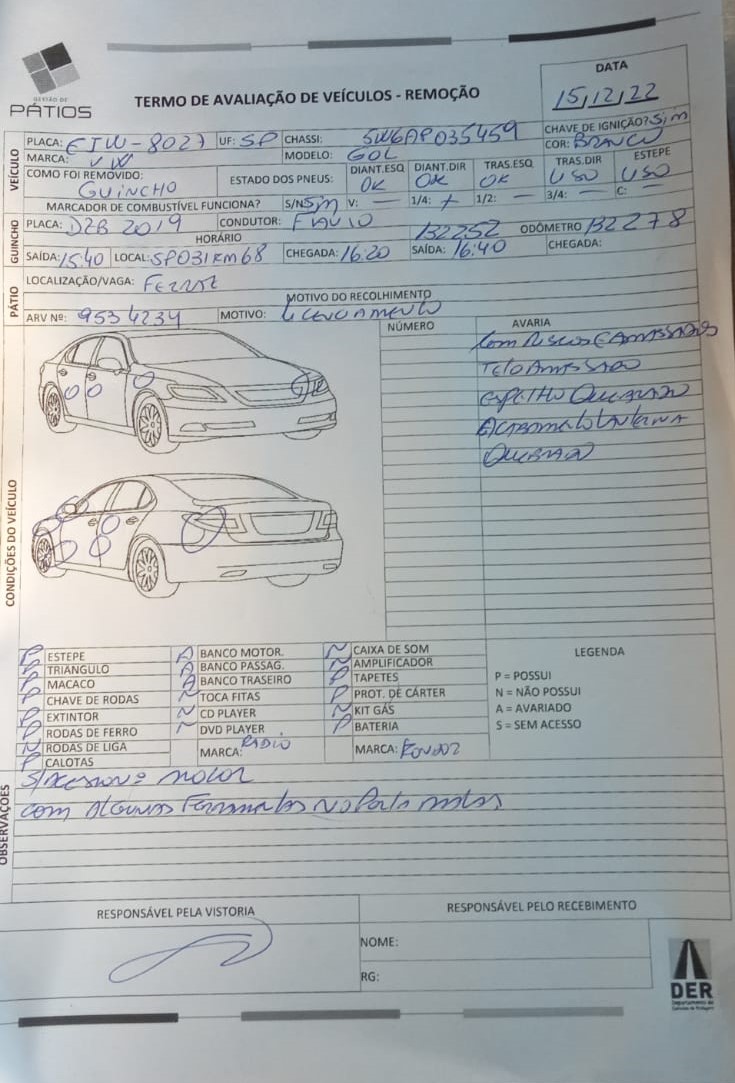 GESTÃO DE
PÁTIOS
TERMO DE AVALIAÇÃO DE VEÍCULOS - REMOÇÃO
DATA
15,12,22
VEÍCULO
PLACA: EIW-8027 UF: SP CHASSI: 5W6AP035459 CHAVE DE IGNIÇÃO? Sim
MARCA: VW MODELO: GOL COR: BRANCO
COMO FOI REMOVIDO: GUINCHO ESTADO DOS PNEUS: DIANT.ESQ OK DIANT.DIR OK TRAS.ESQ OK TRAS.DIR USO ESTEPE USO
MARCADOR DE COMBUSTÍVEL FUNCIONA? S/N Sim V: — 1/4: + 1/2: — 3/4: — C: —
GUINCHO
PLACA: DZB 2019 CONDUTOR: FLAVIO 132252 ODÔMETRO 132278
HORÁRIO
SAÍDA: 15:40 LOCAL: SP031 KM 68 CHEGADA: 16:20 SAÍDA: 16:40 CHEGADA:
PÁTIO
LOCALIZAÇÃO/VAGA: FERRAZ
MOTIVO DO RECOLHIMENTO
ARV Nº: 9534234 MOTIVO: LICENCIAMENTO
CONDIÇÕES DO VEÍCULO
NÚMERO AVARIA
Com Riscos E Amassados
Teto Amassado
Espelho Quebrado
Lanterna
Quebrad
P ESTEPE A BANCO MOTOR. N CAIXA DE SOM LEGENDA
P TRIÂNGULO A BANCO PASSAG. N AMPLIFICADOR
P MACACO A BANCO TRASEIRO P TAPETES P = POSSUI
P CHAVE DE RODAS N TOCA FITAS P PROT. DE CÁRTER N = NÃO POSSUI
P EXTINTOR N CD PLAYER N KIT GÁS A = AVARIADO
P RODAS DE FERRO N DVD PLAYER P BATERIA S = SEM ACESSO
N RODAS DE LIGA MARCA: RADIO MARCA:
P CALOTAS
OBSERVAÇÕES
motor
com Algumas Ferramentas No Porta malas
RESPONSÁVEL PELA VISTORIA RESPONSÁVEL PELO RECEBIMENTO
NOME:
RG:
DER
Departamento de Estradas de Rodagem